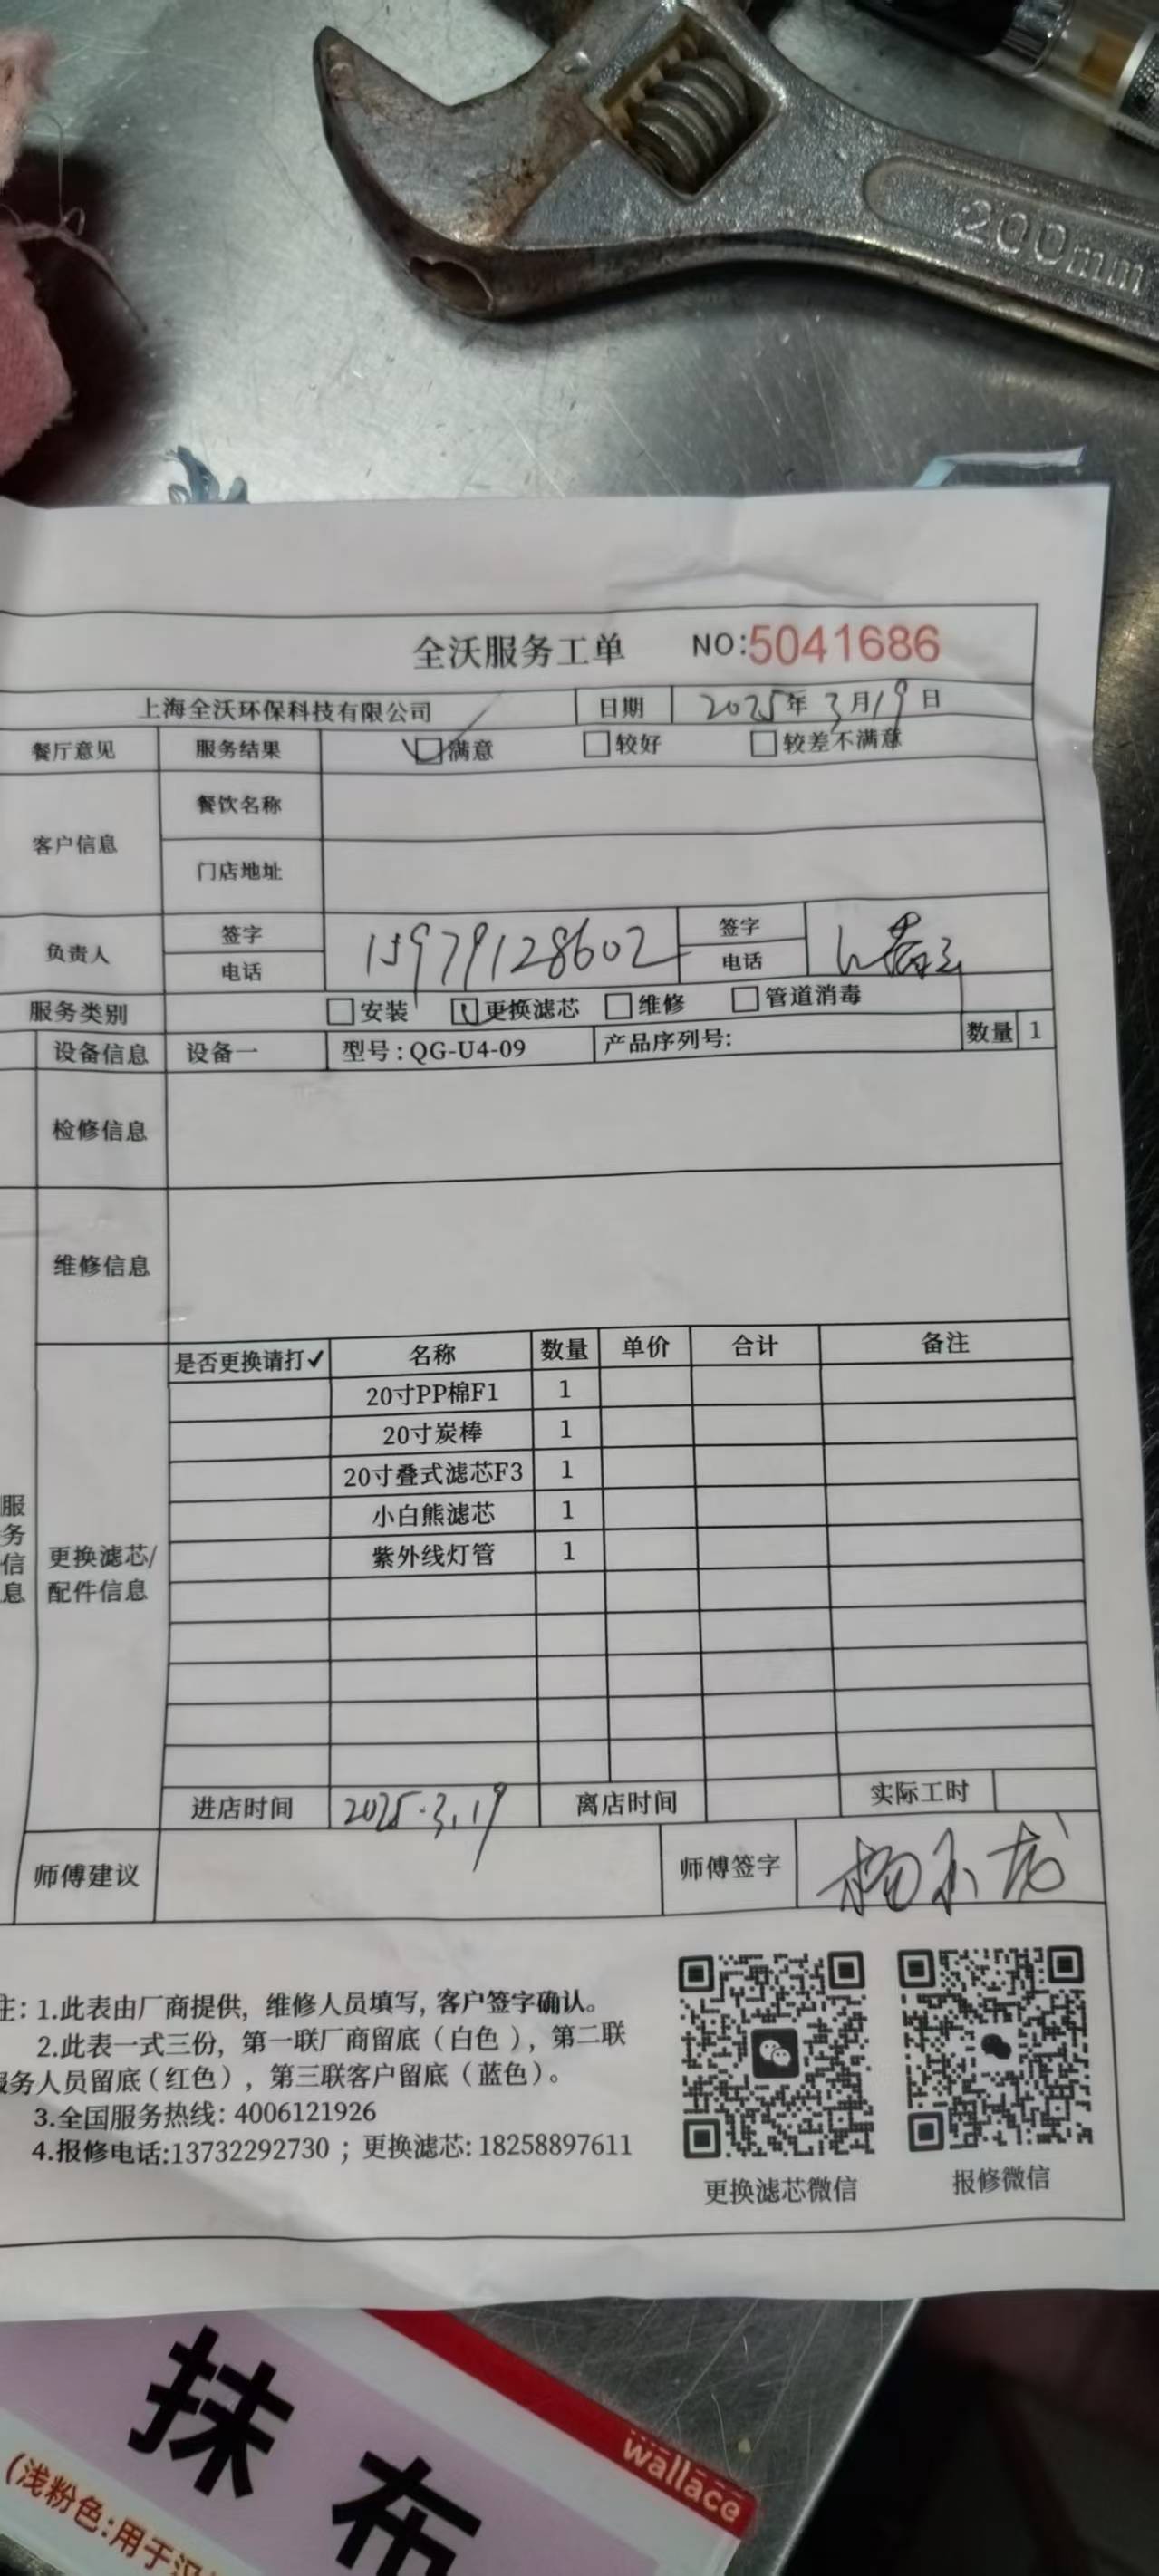 200mm
全沃服务工单 NO:5041686
上海全沃环保科技有限公司 日期 2025年3月19日
餐厅意见 服务结果 满意 较好 较差不满意
客户信息 餐饮名称
门店地址
负责人 签字 电话 15979128602 签字 电话
服务类别 安装 更换滤芯 维修 管道消毒
设备信息 设备一 型号:QG-U4-09 产品序列号: 数量 1
检修信息
维修信息
服务信息
更换滤芯/配件信息
是否更换请打✓ 名称 数量 单价 合计 备注
20寸PP棉F1 1
20寸炭棒 1
20寸叠式滤芯F3 1
小白熊滤芯 1
紫外线灯管 1
进店时间 2025.3.19 离店时间 实际工时
师傅建议 师傅签字
注: 1.此表由厂商提供, 维修人员填写, 客户签字确认。
2.此表一式三份, 第一联厂商留底(白色), 第二联
服务人员留底(红色), 第三联客户留底(蓝色)。
3.全国服务热线: 4006121926
4.报修电话:13732292730 ; 更换滤芯: 18258897611
更换滤芯微信 报修微信
抹布
wallace
(浅粉色:用于